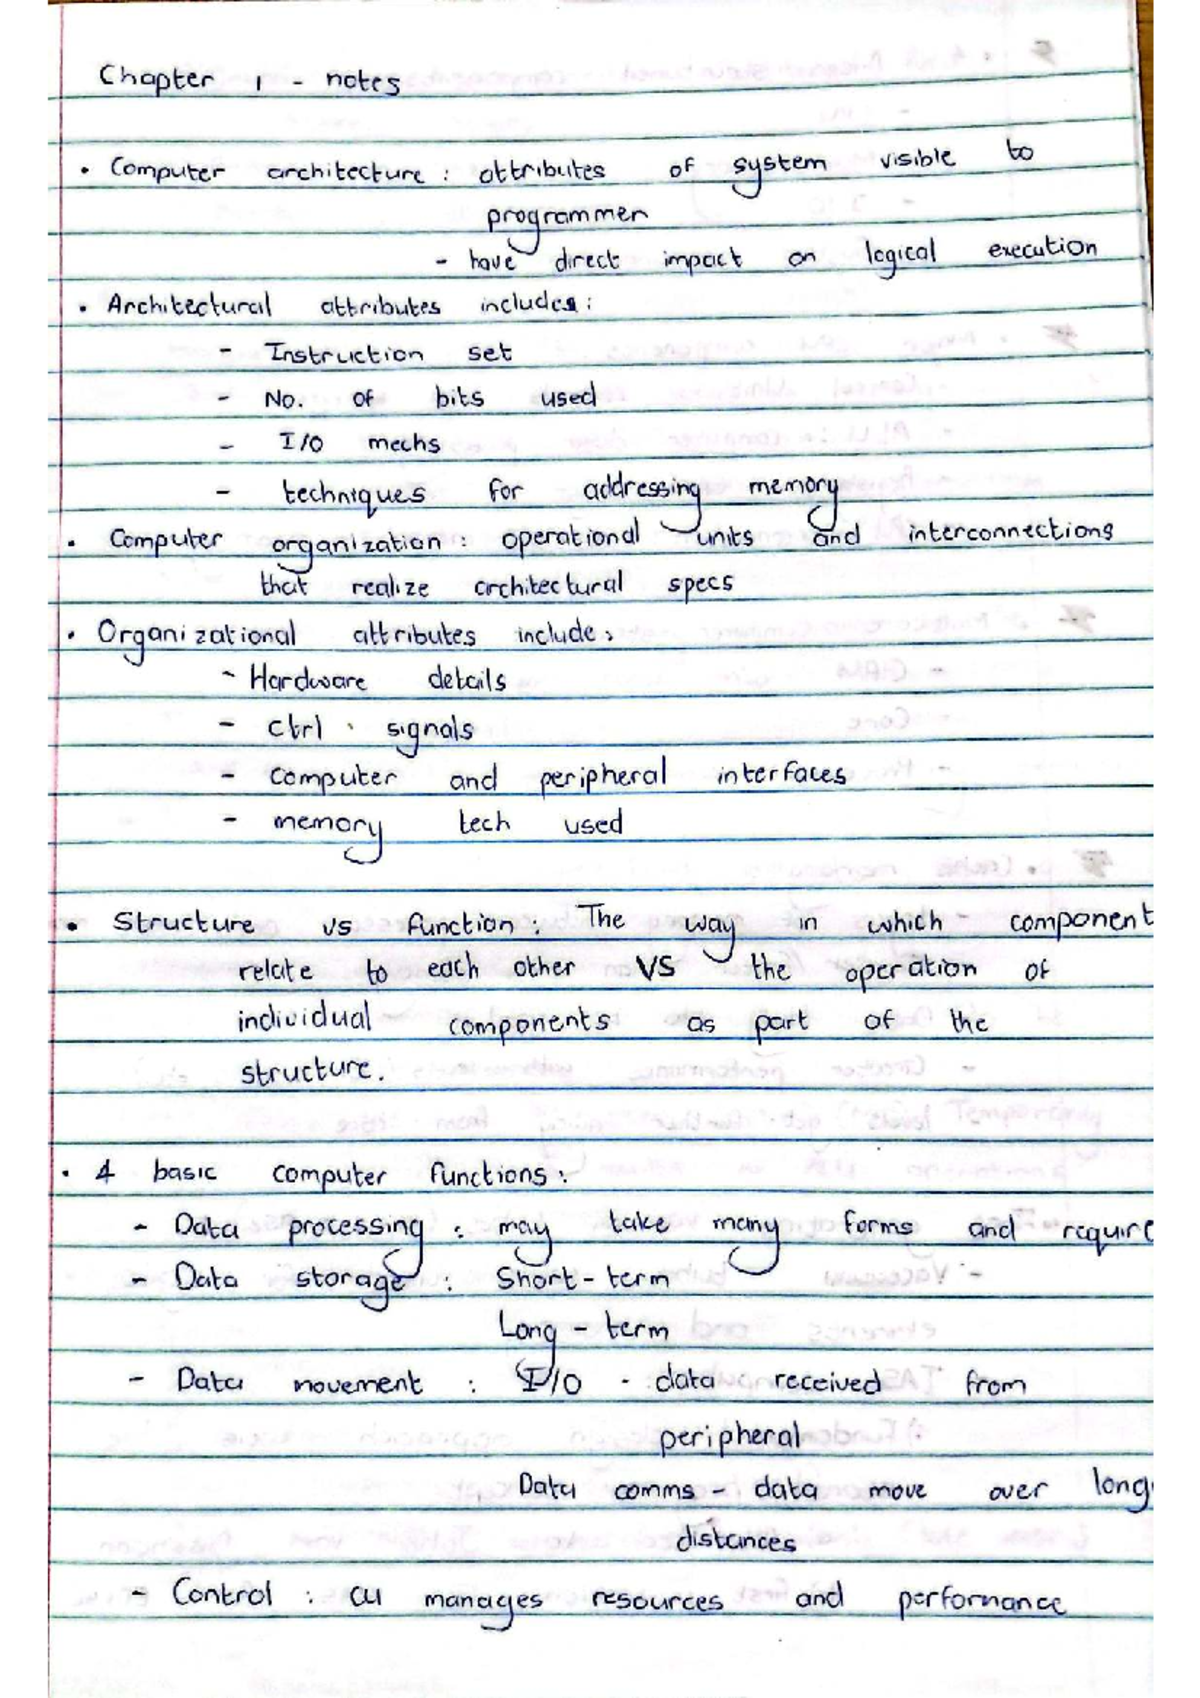 Chapter 1 - notes
• Computer architecture : attributes of system visible to
programmer
- have direct impact on logical execution
• Architectural attributes includes:
- Instruction set
- No. of bits used
- I/O mechs
- techniques for addressing memory
• Computer organization : operational units and interconnections
that realize architectural specs
• Organizational attributes include:
- Hardware details
- Ctrl . signals
- Computer and peripheral interfaces
- memory tech used
• Structure vs function: The way in which component
relate to each other VS the operation of
individual components as part of the
structure.
• 4 basic computer functions:
- Data processing : may take many forms and require
- Data storage : Short-term
Long-term
- Data movement : I/O - data received from
peripheral
Data comms - data move over long
distances
- Control : CU manages resources and performance